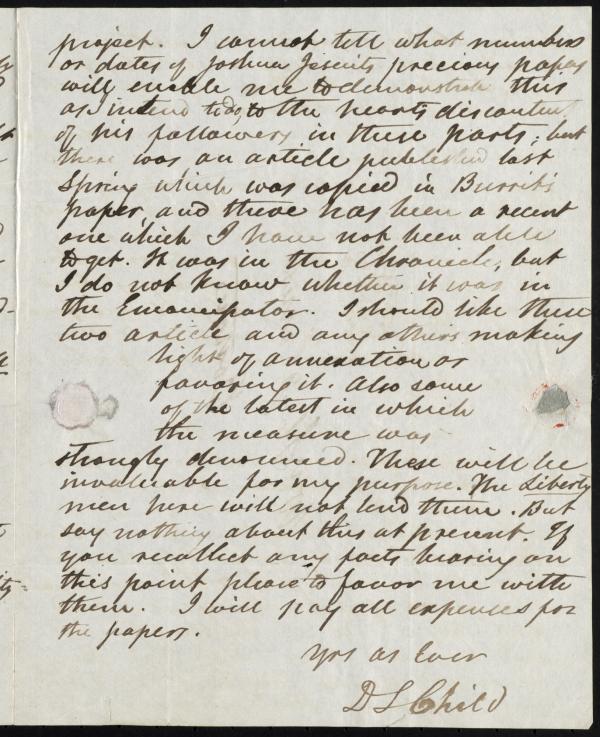 project. I cannot tell what numbers
or dates of Joshua Jesuits precious papers
will enable me to demonstrate this
as I intend to do, to the hearts discontent
of his followers in these parts; but
there was an article published last
spring which was copied in Burritt's
paper, and there has been a recent
one which I have not been able
to get. It was in the Chronicle, but
I do not know whether it was in
the Emancipator. I should like these
two article and any others making
light of annexation or
favoring it. Also some
of the latest in which
the measure was
strongly denounced. These will be
invaluable for my purpose. The Liberty
men here will not lend them. But
say nothing about this at present. If
you recollect any facts bearing on
this point please to favor me with
them. I will pay all expenses for
the papers.
Yrs as Ever
D L Child